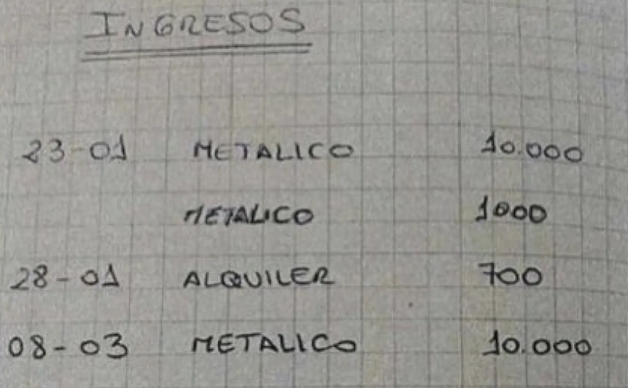 INGRESOS
23-01 METALICO 10.000
METALICO 1000
28-01 ALQUILER 700
08-03 METALICO 10.000